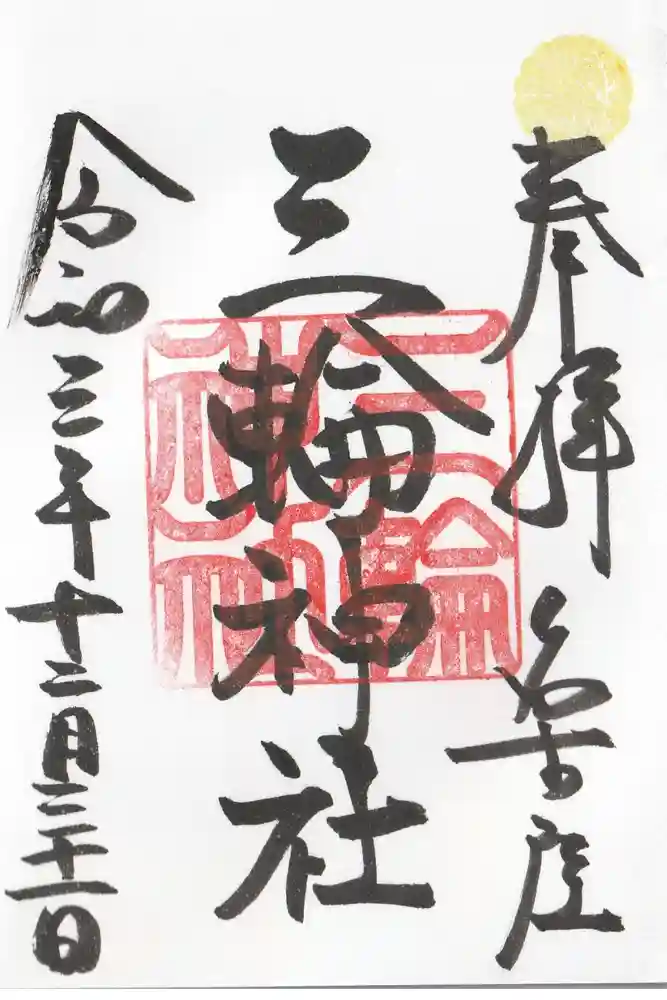 奉拝 名古屋
三輪神社
令和三年十二月二十一日
三輪
神社